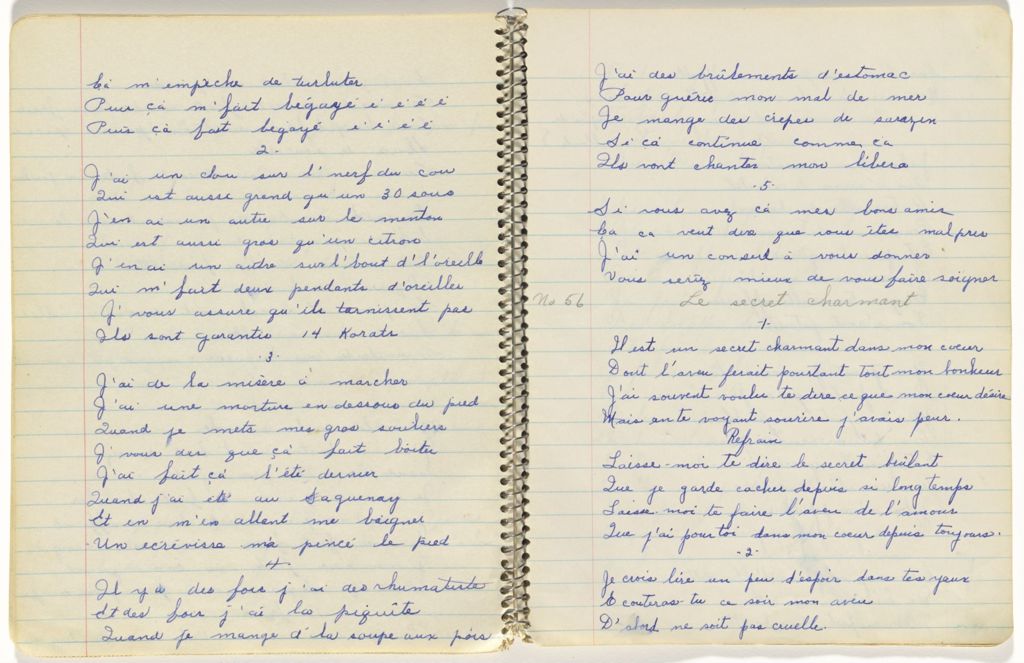 Cà m'empèche de turluter
Puis çà m'fait bégayé i' é' é' é
Puis çà fait bégayé i' é' é' é
2.
J'ai un clou sur l'nerf du cou
Qui est aussi grand qu'un 30 sous
J'en ai un autre sur le menton
Qui est aussi gros qu'un citron
J'en ai un autre sur l'bout d'l'oreille
Qui m'fait deux pendants d'oreilles
J'vous assure qu'ils ternissent pas
Ils sont garantis 14 Karats
3.
J'ai de la misère à marcher
J'ai une morture en dessous du pied
Quand je mets mes gros souliers
J'vous dis que çà fait boiter
J'ai fait çà l'été dernier
Quand j'ai été au Saguenay
Et en m'en allant me baigner
Un ecrévisse m'a pincé le pied
4
Il y a des fois j'ai des rhumatiste
Et des fois j'ai la piquite
Quand je mange d'la soupe aux pois
J'ai des brûlements d'estomac
Pour guérir mon mal de mer
Je mange des crêpes de sarazin
Si cà continue comme ca
Ils vont chanter mon libera
.5.
Si vous avez cà mes bons amis
Ca ca veut dire que vous êtes mal pris
J'ai un conseil à vous donner
Vous seriez mieux de vous faire soigner
No 56 Le secret charmant
1.
Il est un secret charmant dans mon coeur
Dont l'aveu ferait pourtant tout mon bonheur
J'ai souvent voulu te dire ce que mon coeur désire
Mais en te voyant sourire j'avais peur.
Refrain
Laisse-moi te dire le secret brûlant
Que je garde cacher depuis si longtemps
Laisse moi te faire l'aveu de l'amour
Que j'ai pour toi dans mon coeur depuis toujours.
-2-
Je crois lire un peu d'espoir dans tes yeux
Ecouteras-tu ce soir mon aveu
D'abord ne soit pas cruelle.